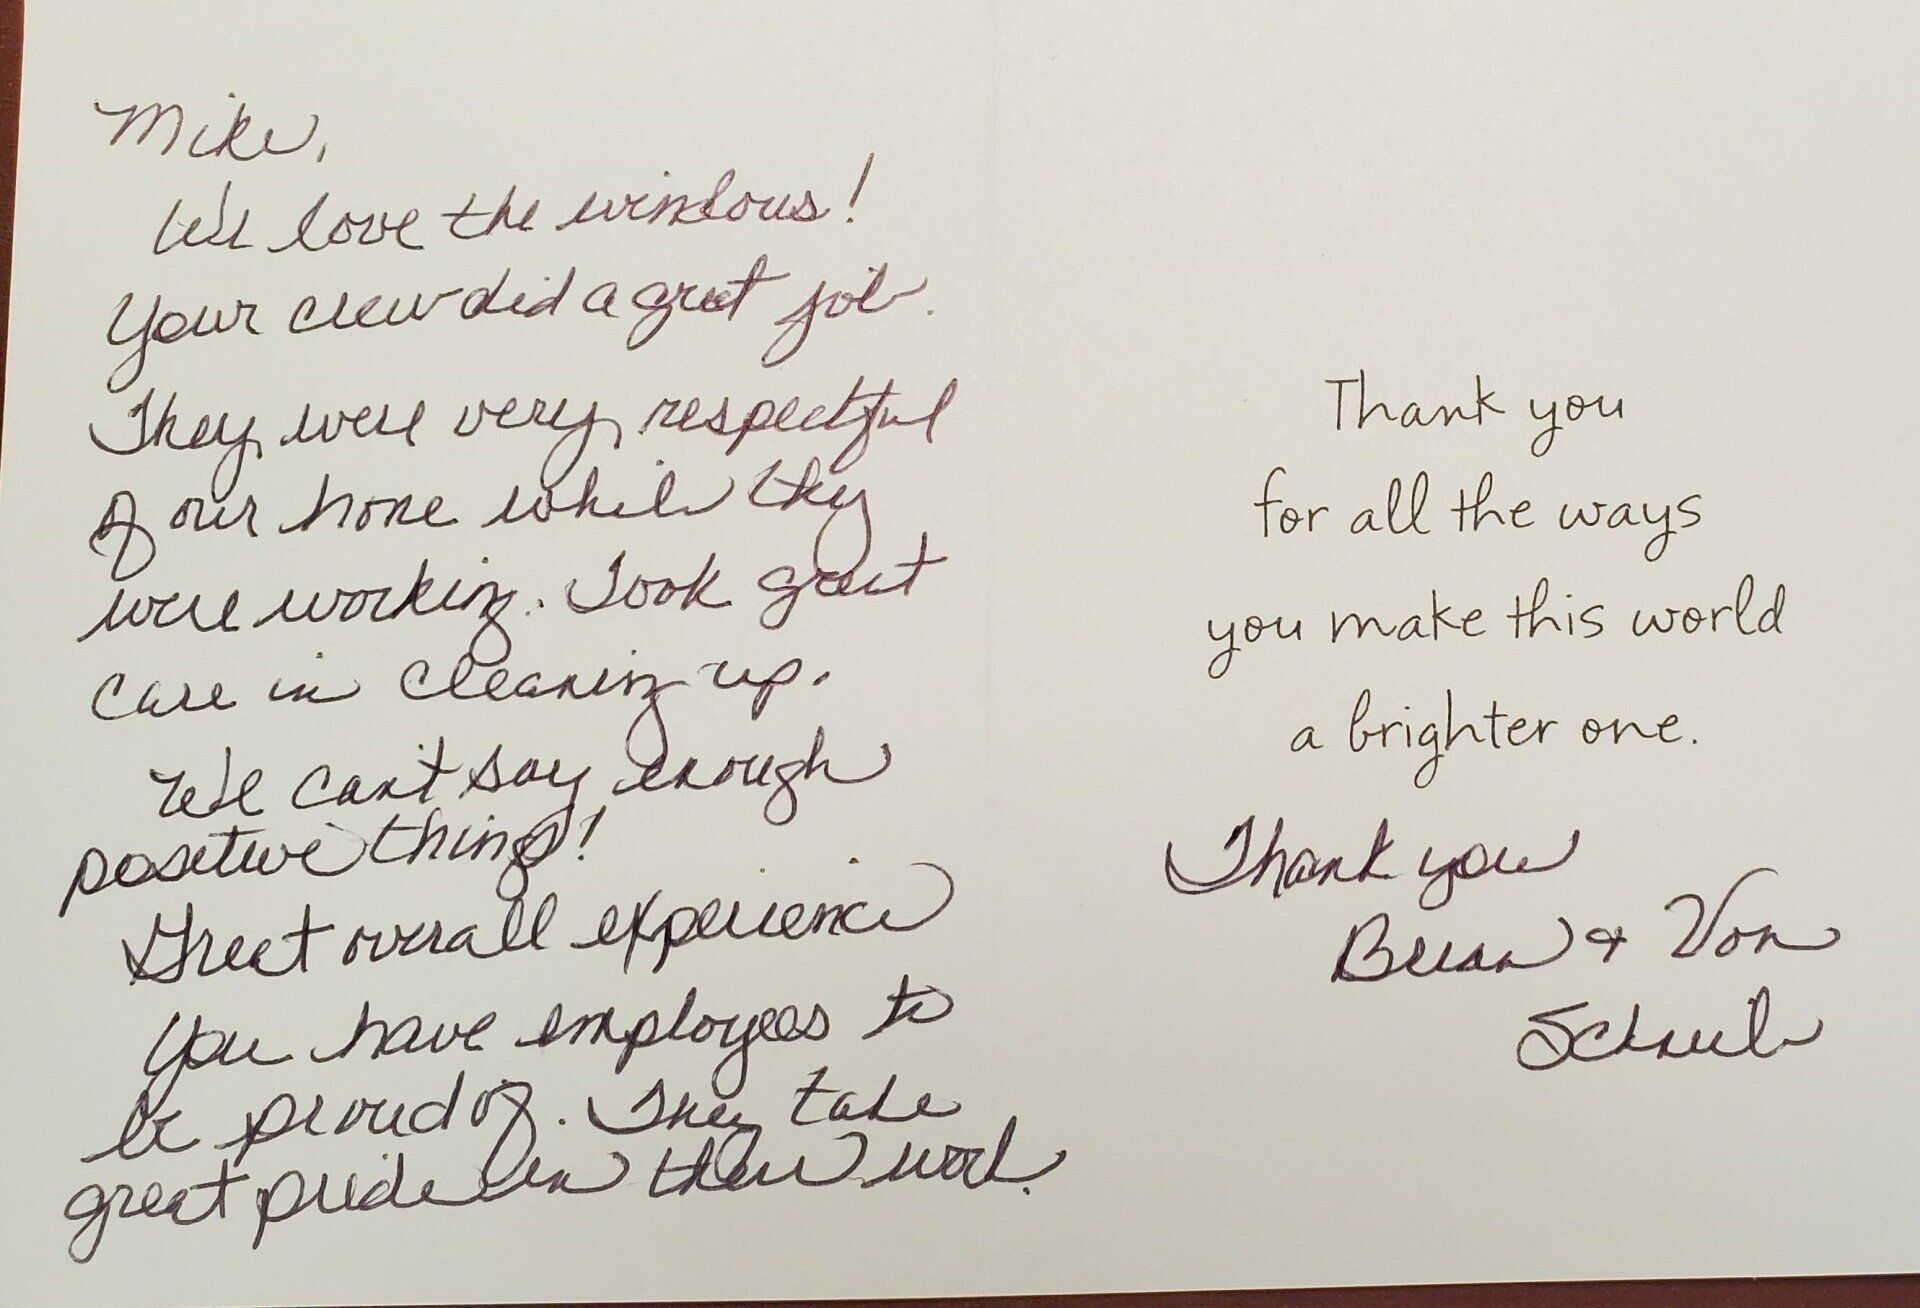 Mike,
We love the windows!
Your crew did a great job.
They were very respectful
of our home while they
were working. Took great
care in cleaning up.
We can't say enough
positive things!
Great overall experience
You have employees to
be proud of. They take
great pride in their work.
Thank you
for all the ways
you make this world
a brighter one.
Thank you
Brian & Von